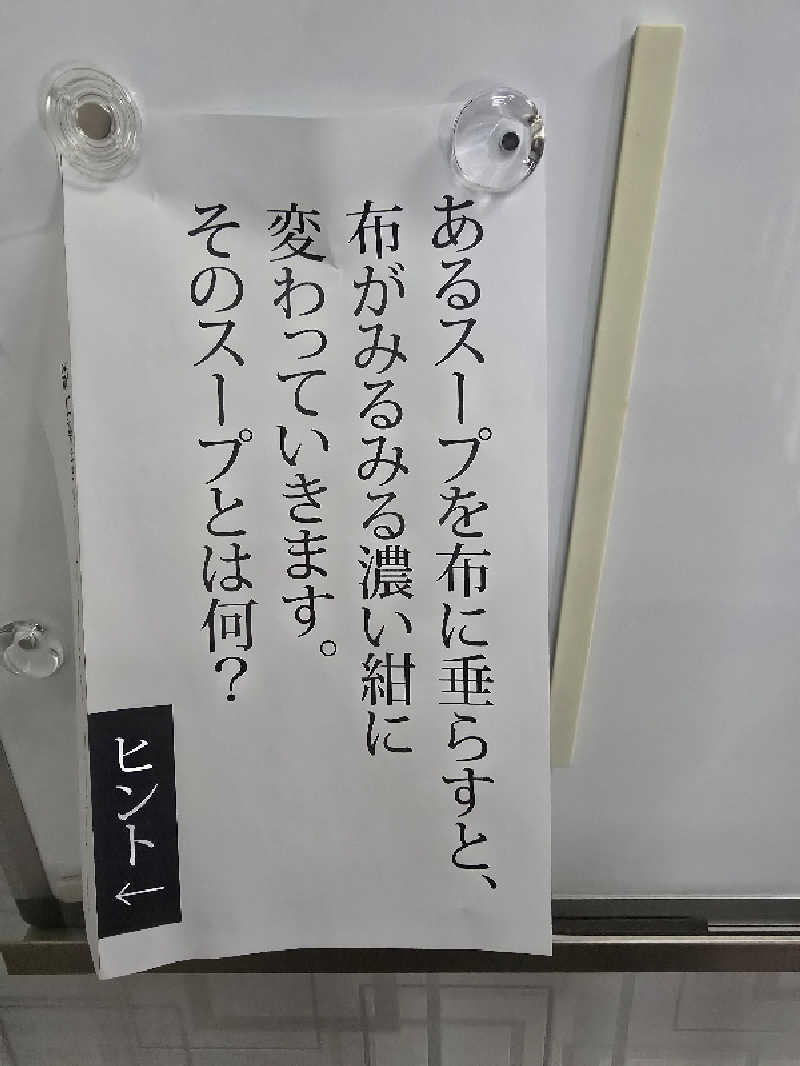 あるスープを布に垂らすと、
布がみるみる濃い紺に
変わっていきます。
そのスープとは何？
ヒント←